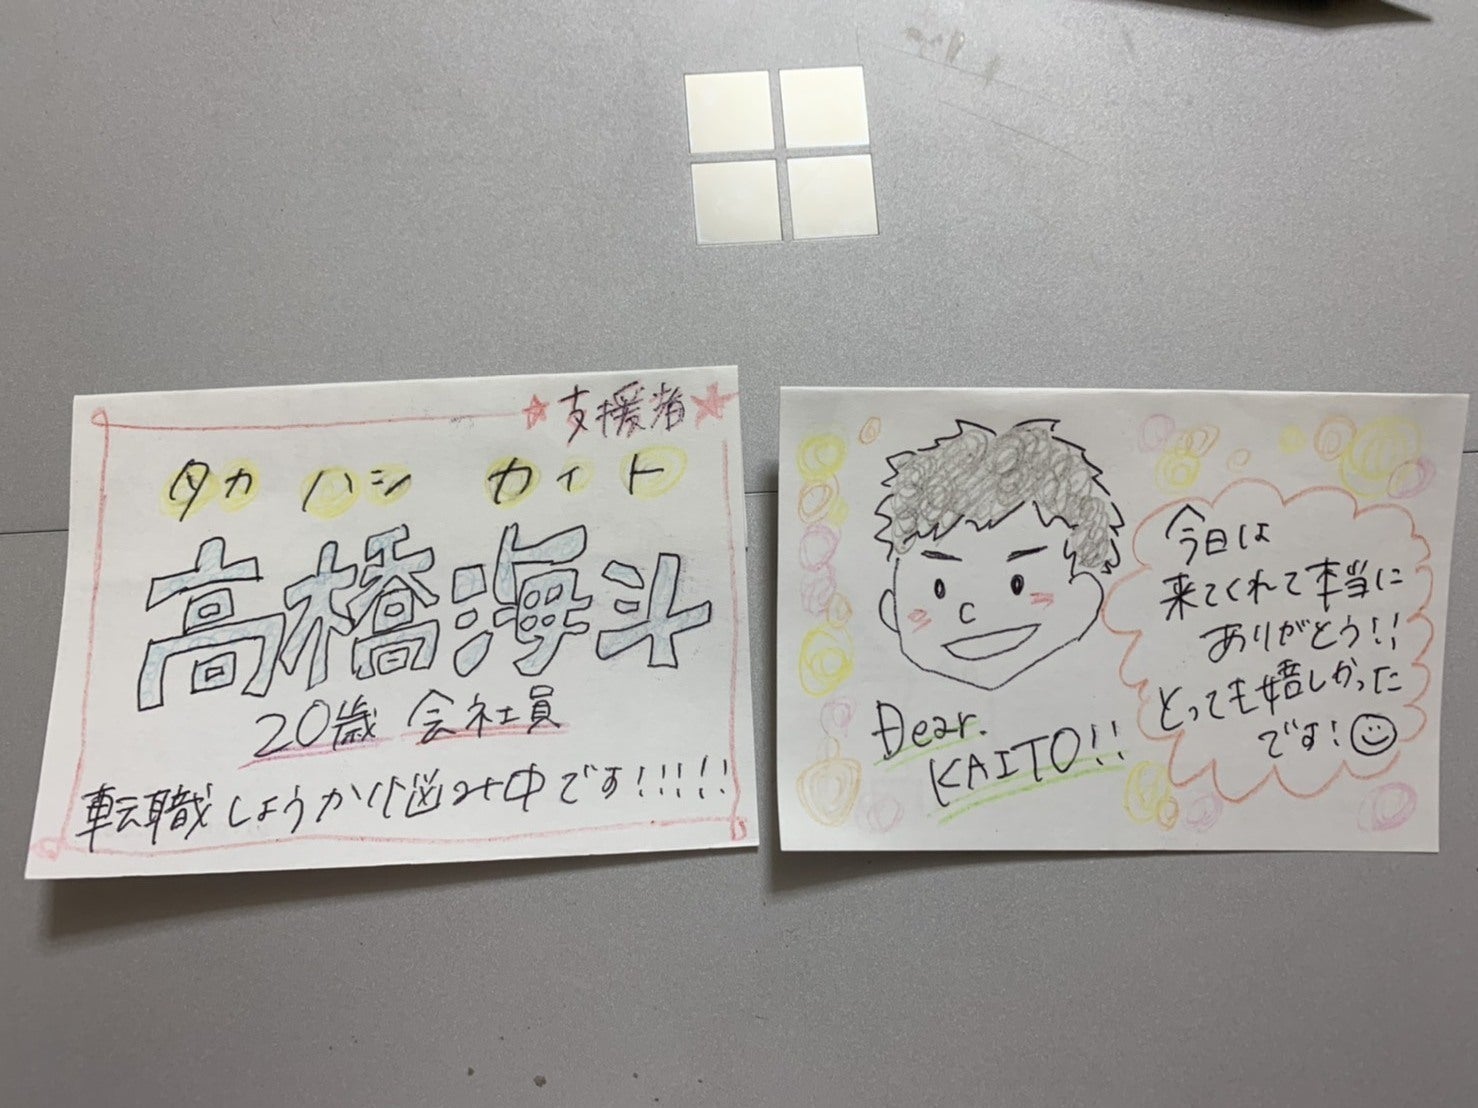 ★支援者★
タカ ハシ カイト
高橋海斗
20歳 会社員
転職しようか悩み中です!!!!!
今日は
来てくれて本当に
ありがとう!!
とっても嬉しかった
です!
Dear.
KAITO!!